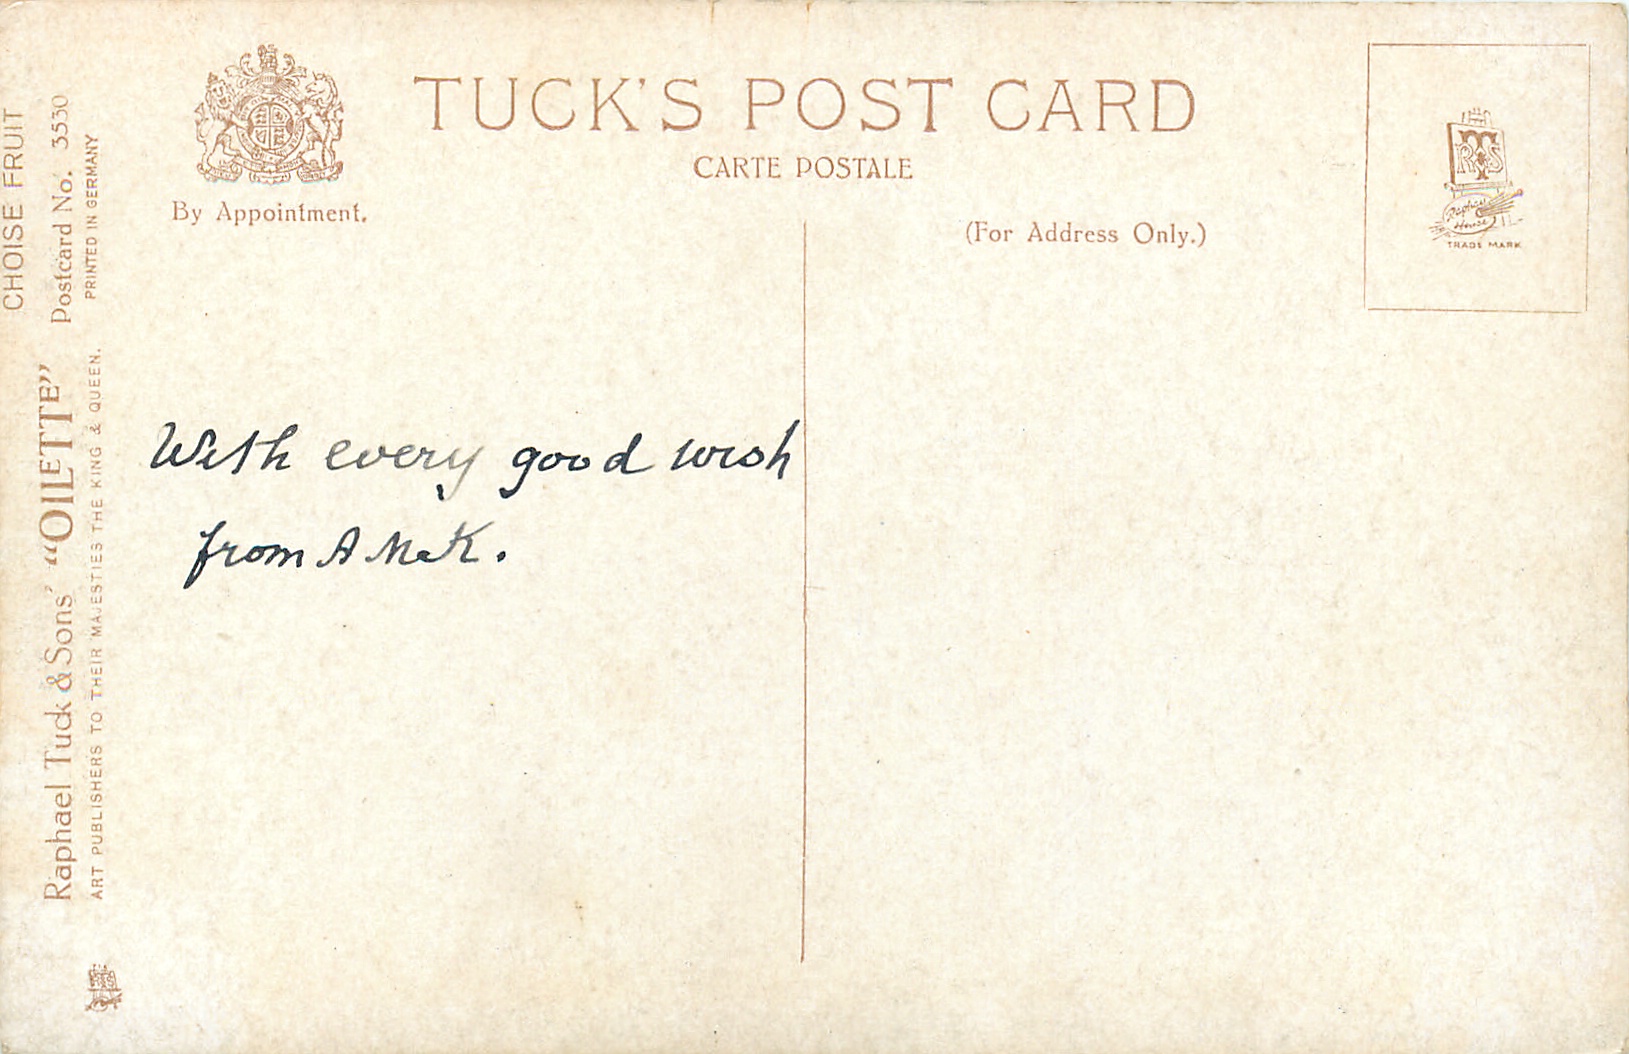 TUCK'S POST CARD
CARTE POSTALE
By Appointment.
(For Address Only.)
RTS
Raphael
House
TRADE MARK
CHOISE FRUIT
Raphael Tuck & Sons' "OILETTE" Postcard No. 3530
ART PUBLISHERS TO THEIR MAJESTIES THE KING & QUEEN. PRINTED IN GERMANY
With every good wish
from A McK.